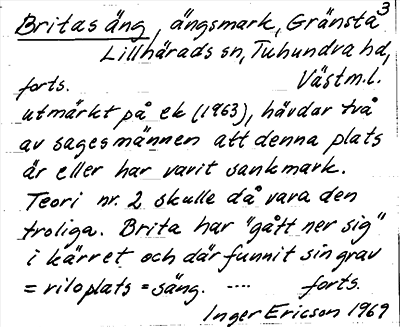 Britas äng, ängsmark, Gränsta 3
Lillhärads sn, Tuhundra hd,
forts. Västm.l.
utmärkt på ek (1963), hävdar två
av sagesmännen att denna plats
är eller har varit sankmark.
Teori nr. 2 skulle då vara den
troliga. Brita har "gått ner sig"
i kärret och där funnit sin grav
= viloplats = säng. .... forts.
Inger Ericson 1969